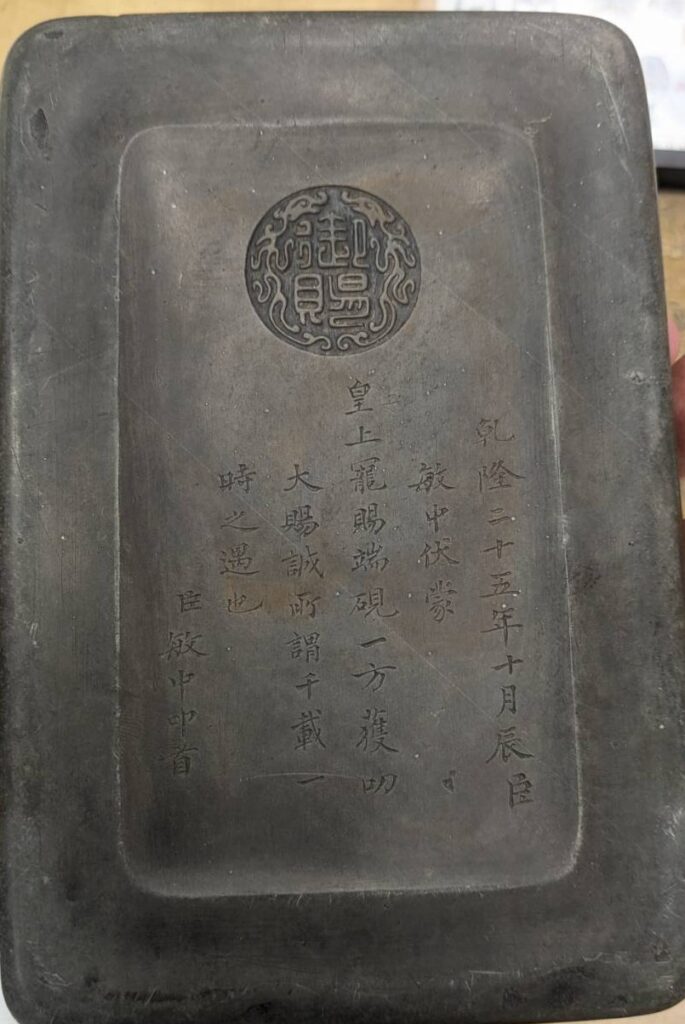 御賜
乾隆二十五年十月辰臣
敏中伏蒙
皇上寵賜端硯一方獲叨
大賜誠所謂千載一
時之遇也
臣敏中叩首